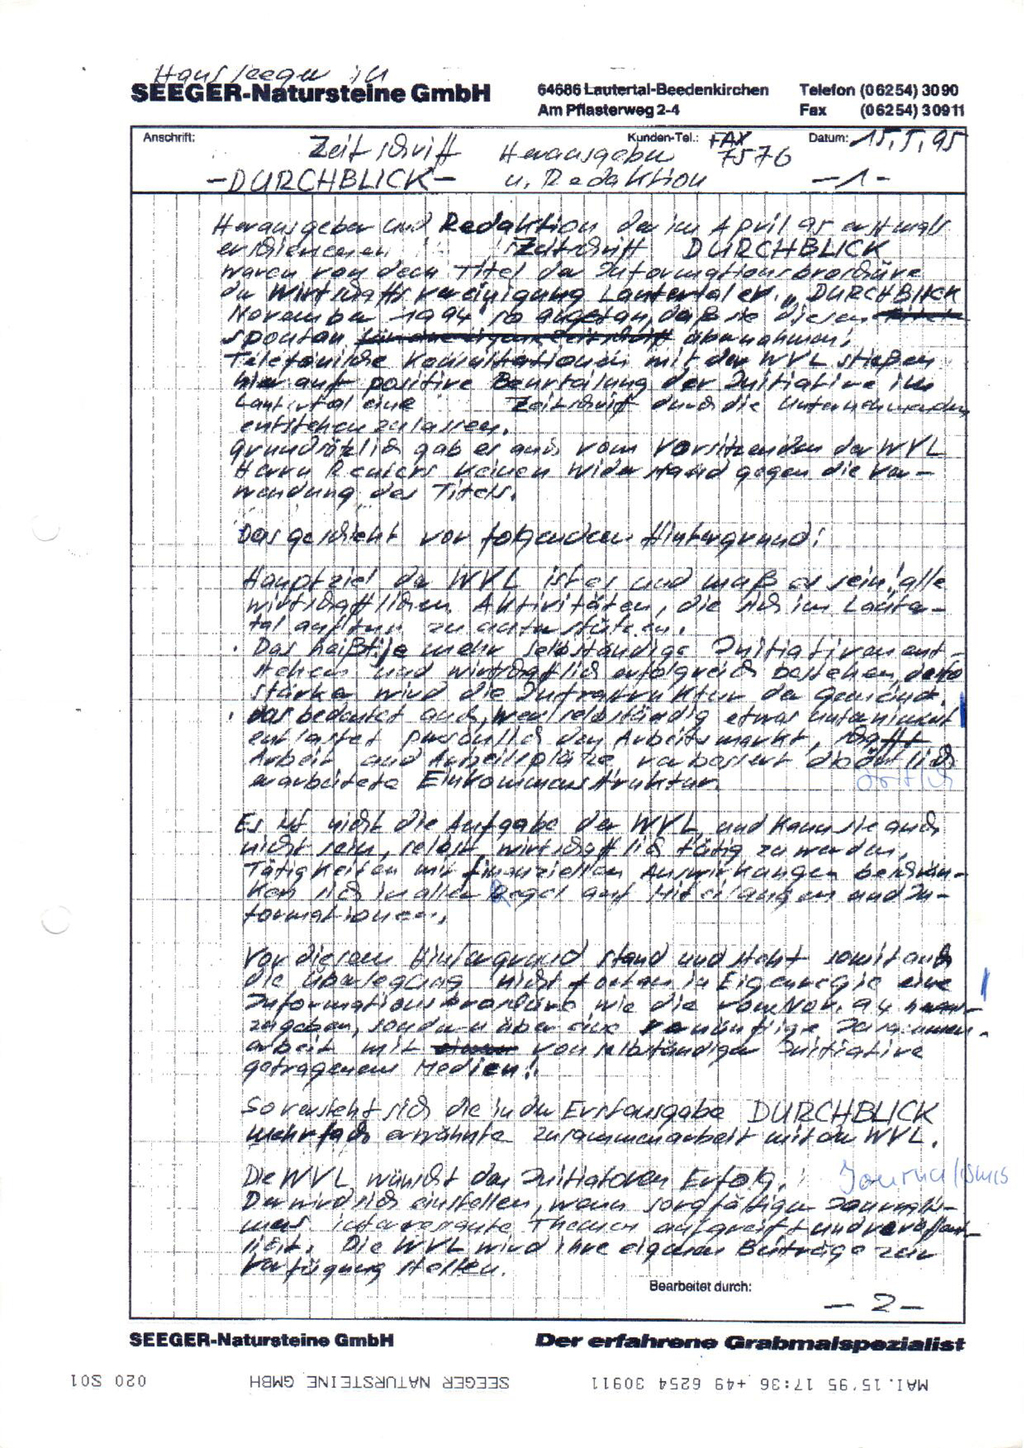 Hans Seeger
SEEGER-Natursteine GmbH
64686 Lautertal-Beedenkirchen
Am Pflasterweg 2-4
Telefon (06254) 3090
Fax (06254) 30911
Anschrift:
Kunden-Tel.: FAX 7576
Datum: 15.5.95
Zeitschrift Herausgeber
-DURCHBLICK- u. Redaktion -1-
Herausgeber und Redaktion der im April 95 erstmals
erschienenen Zeitschrift DURCHBLICK
waren von dem Titel der Informationsbroschüre
der Wirtschaftsvereinigung Lautertal e.V. "DURCHBLICK
November 1994" so angetan, daß sie diesen Titel
spontan für die eigene Zeitschrift übernahmen!
Telefonische Konsultationen mit der WVL stießen
hier auf positive Beurteilung der Initiative im
Lautertal eine Zeitschrift durch die
entstehen zu lassen.
Grundsätzlich gab es auch vom Vorsitzenden der WVL
Herrn keinen Widerstand gegen die Ver-
wendung des Titels.
Das geschieht vor folgendem Hintergrund:
Hauptziel der WVL ist es und muß es sein, alle
wirtschaftlichen Aktivitäten, die sich im Lauter-
tal auftun zu unterstützen.
. Das heißt: je mehr selbständige Initiativen ent-
stehen und wirtschaftlich erfolgreich bestehen, desto
stärker wird die Infrastruktur der Gemeinde.
. Das bedeutet auch, wer selbständig etwas unternimmt
entlastet persönlich den Arbeitsmarkt, schafft
Arbeit und Arbeitsplätze verbessert die örtlich
erarbeitete Einkommensstruktur.
örtlich
Es ist nicht die Aufgabe der WVL und kann sie auch
nicht sein, selbst wirtschaftlich tätig zu werden.
Tätigkeiten mit finanziellen Auswirkungen beschrän-
ken sich in aller Regel auf Mitteilungen und In-
formationen.
Vor diesem Hintergrund stand und steht somit auch
die Überlegung nicht in Eigenregie eine
Informationsbroschüre wie die vom Nov. 94 heraus-
zugeben, sondern über eine vernünftige Zusammen-
arbeit mit einer von selbständiger Initiative
getragenem Medien!
So versteht sich die in der Erstausgabe DURCHBLICK
mehrfach erwähnte Zusammenarbeit mit der WVL.
Die WVL wünscht den Initiatoren Erfolg.
Journalismus
Der wird sich einstellen, wenn sorgfältiger Journalis-
mus interessante Themen aufgreift und veröffent-
licht. Die WVL wird ihre eigenen Beiträge zur
Verfügung stellen.
Bearbeitet durch:
-2-
SEEGER-Natursteine GmbH
Der erfahrene Grabmalspezialist
MAI. 15 '95 17:36 +49 6254 30911 SEEGER NATURSTEINE GMBH 020 S01